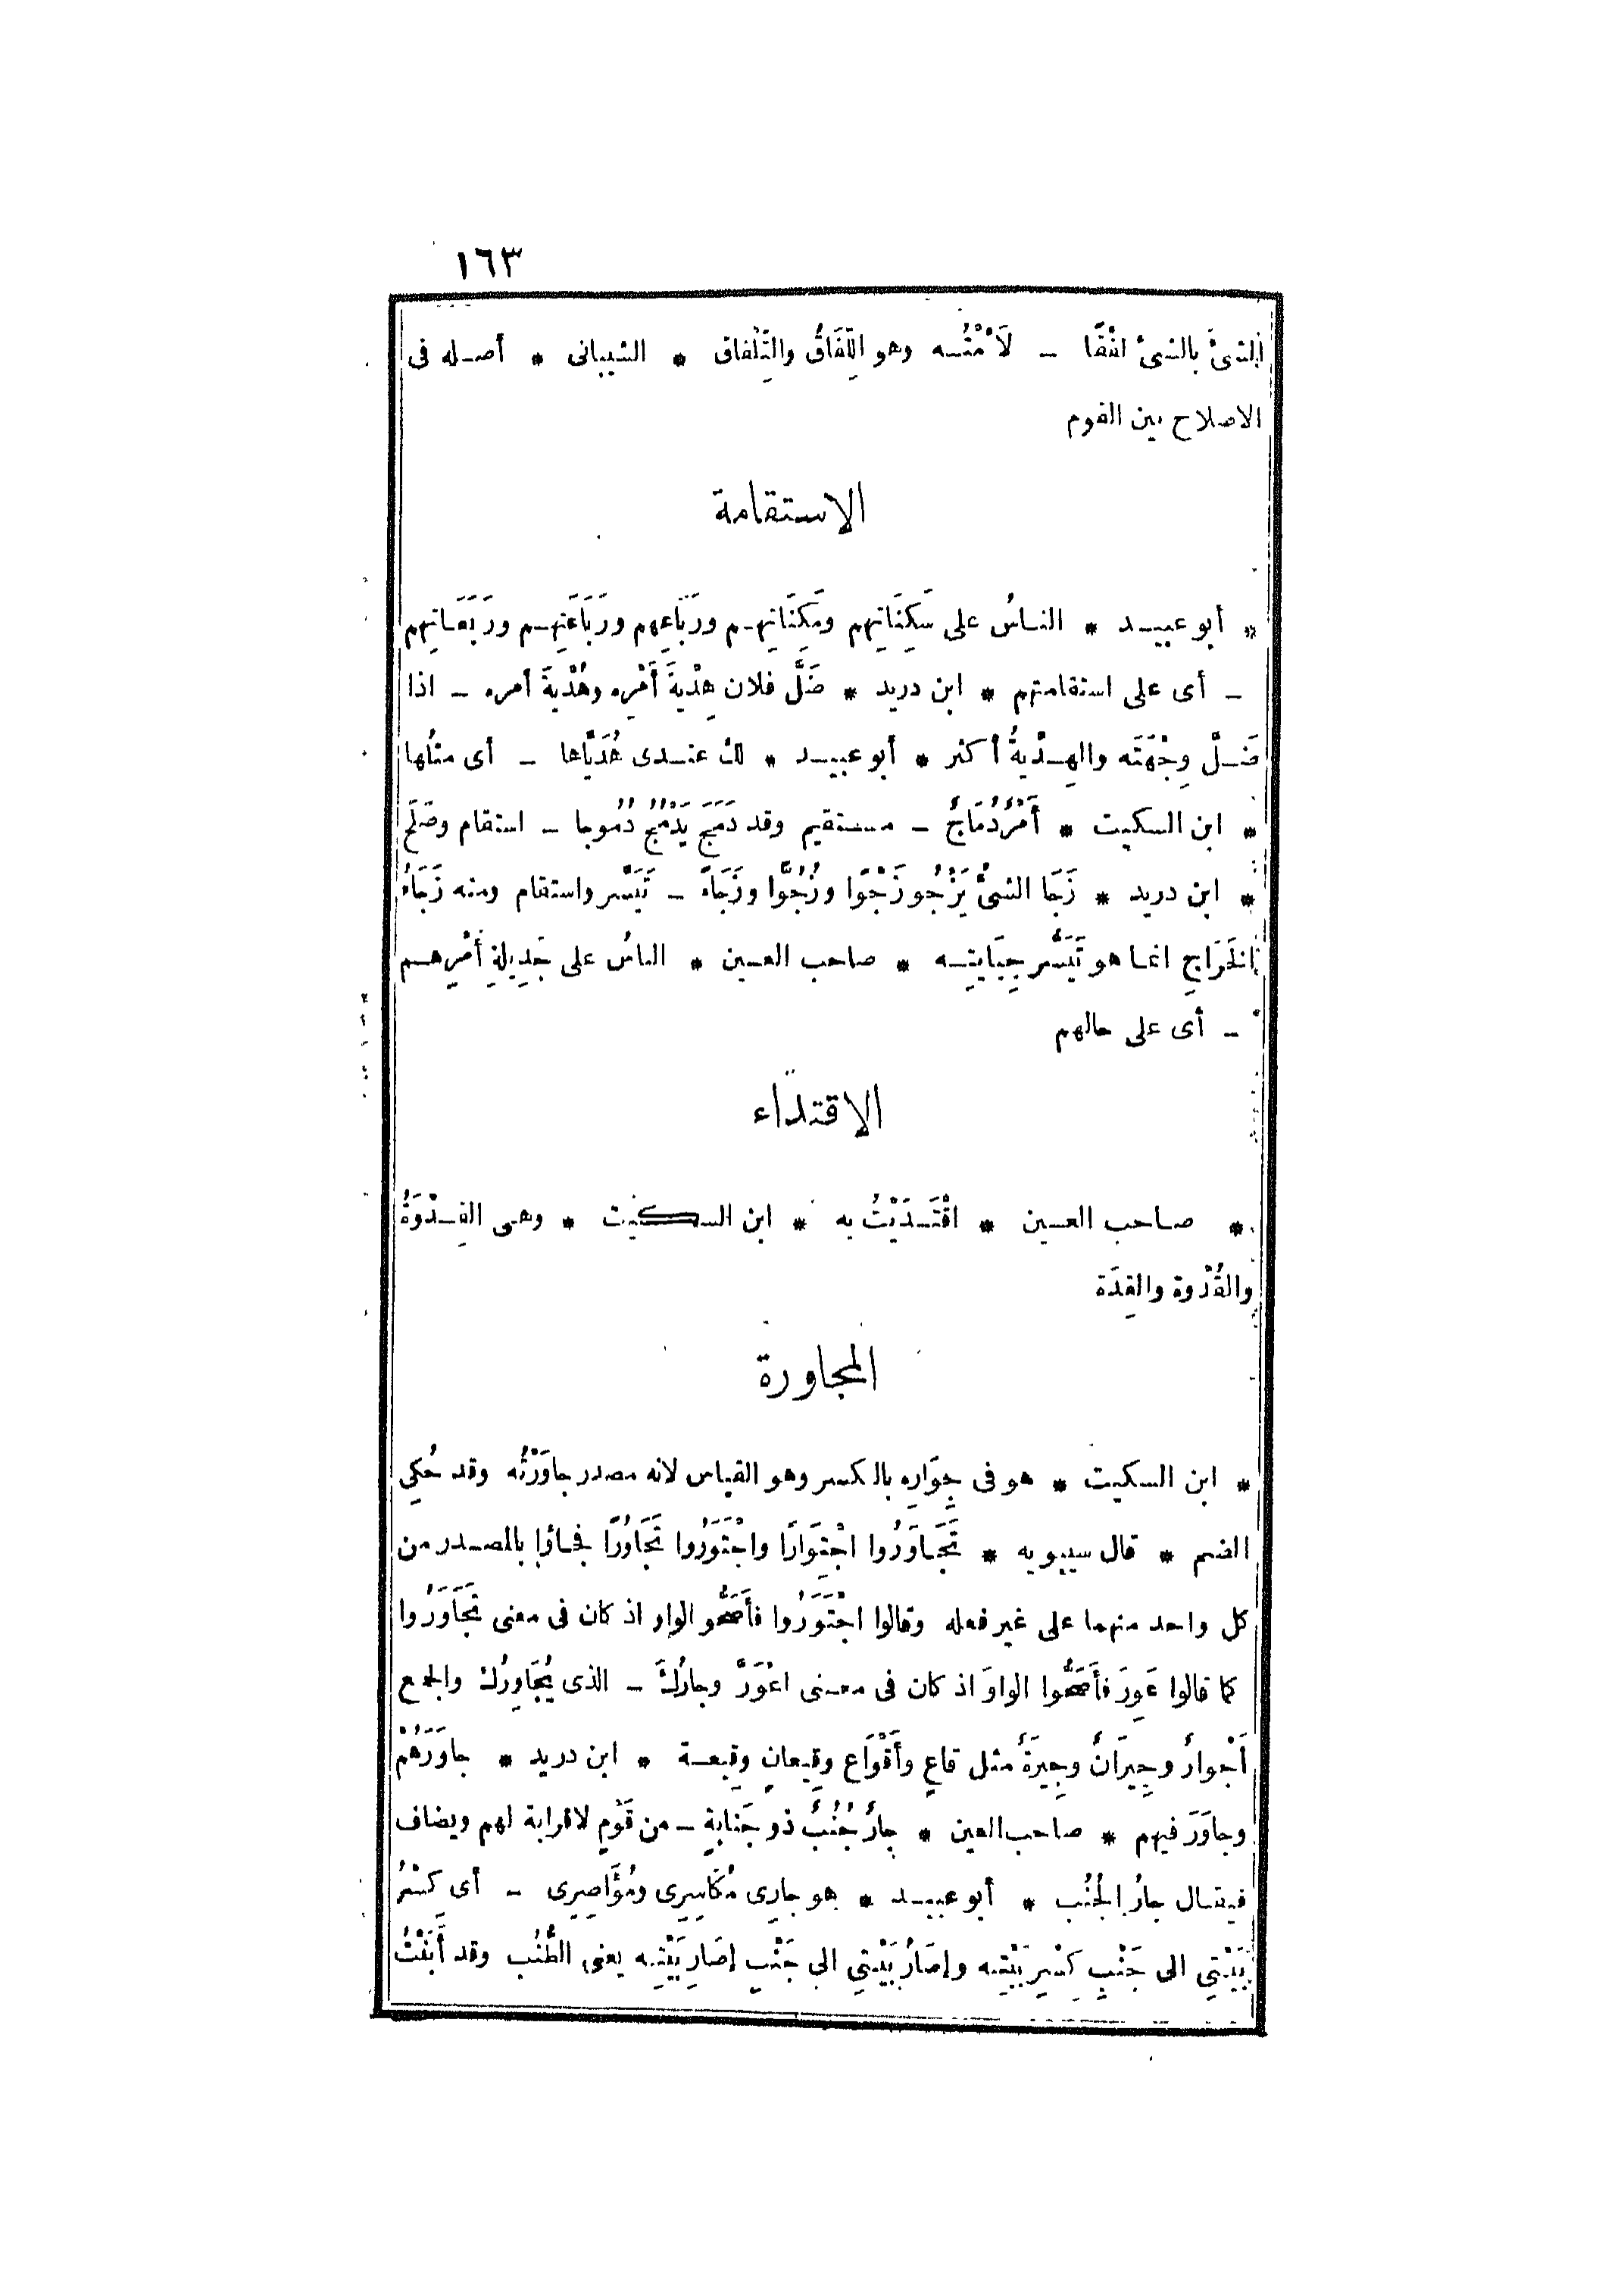 ١٦٣
الشئَ بالشئ لفْقًا ـ لَاءَمْتُـه وهو اللِّفَاقُ والتِّلْفاق * الشيبانى * أصـله فى
الاصلاح بين القوم
الاستقامة
* أبو عبيـد * الناسُ على سَكِنَاتِهم ومَكِنَاتِهـم ورَبَاعِهم ورَبَاعَتِهـم ورَبَعَـاتِهم
ـ أى على استقامتهم * ابن دريد * ضَلَّ فلان هِدْيةَ أَمْرِه وهُدْيةَ أمره ـ اذا
ضَـلَّ وِجْهَتَه والهِـدْيةُ أكثر * أبو عبيـد * لك عنـدى هُدَيَّاها ـ أى مثلُها
* ابن السكيت * أَمْرٌ دُمَاجٌ ـ مستقيم وقد دَمَجَ يَدْمُجُ دُمُوجا ـ استقام وصَلَح
* ابن دريد * زَجَا الشئُ يَزْجُو زَجْوًا وزُجُوًّا وزَجَاءً ـ تَيَسَّر واستقام ومنه زَجَاءُ
الخَرَاجِ انما هو تَيَسُّر جِبَايَتِـه * صاحب العـين * الناسُ على جَدِيلةِ أَمْرِهـم
ـ أى على حالهم
الاقتداء
* صـاحب العـين * اقْتَـدَيْتُ به * ابن السكيت * وهـى القِـدْوَةُ
والقُدْوة والقِدَة
المجاورة
* ابن السكيت * هو فى جِوَارِه بالكسر وهو القياس لانه مصدر جاوَرْتُه وقد حُكِى
الضم * قال سيبويه * تَجَـاوَرُوا اجْتِوَارًا واجْتَوَرُوا تَجَاوُرًا فجاؤا بالمصـدر من
كل واحد منهما على غير فعله وقالوا اجْتَوَرُوا فأَصَحُّو الواو اذ كان فى معنى تَجَاوَرُوا
كما قالوا عَوِرَ فأَصَحُّوا الواوَ اذ كان فى معـنى اعْوَرَّ وجارُكَ ـ الذى يُجَاوِرُك والجمع
أَجْوارٌ وجِيرَانٌ وجِيرَةٌ مثل قاعٍ وأَقْوَاع وقِيعانٍ وقِيعـة * ابن دريد * جاوَرَهُمْ
وجاوَرَ فيهم * صاحب العين * جارٌ جُنُبٌ ذو جَنابةٍ ـ من قَوْمٍ لاقرابة لهم ويضاف
فيقـال جارُ الجُنُب * أبو عبيـد * هو جارِى مُكَاسِرِى ومُؤَاصِرِى ـ أى كِسْرُ
بَيْتِي الى جَنْبِ كِسْرِ بَيْتِـه وإصَارُ بَيْتِي الى جَنْبِ إصَارِ بَيْتِـه يعنى الطُّنُب وقد